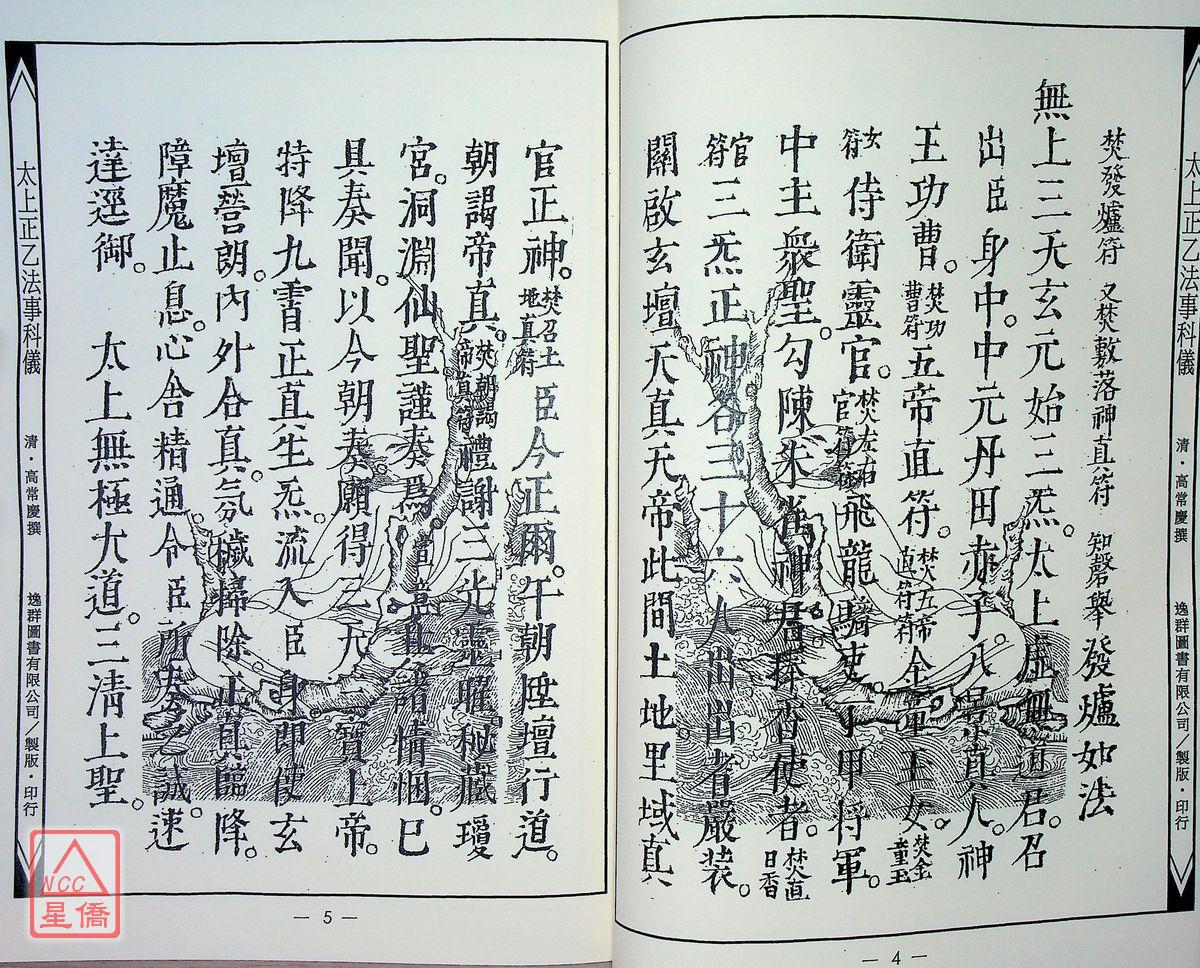 太上正乙法事科儀　清・高常慶撰　逸群圖書有限公司／製版・印行
焚發爐符　又焚敷落神真符　知磬舉　發爐如法
無上三天玄元始三炁。太上虛無道君。召
出臣身中。中元丹田赤子。八景真人。神
王功曹。焚功曹符五帝直符。焚五帝直符符金童玉女。焚金童玉
女符侍衛靈官。焚左右官符飛龍騎吏。丁甲將軍。
中主眾聖。勾陳朱雀神君。捧香使者。焚直日香
官符三炁正神。各三十六人出。出者嚴裝。
關啟玄壇天真天帝此間土地。里域真
— 4 —
官正神。焚召土地真符臣今正爾。午朝陞壇行道。
朝謁帝真。焚朝謁帝真符禮謝三光靈曜。秘藏瓊
宮。洞淵仙聖謹奏為
宣意在齋諸情悃。已
具奏聞。以今朝奏願得三元三寶上帝。
特降九霄正真生炁。流入臣身即使玄
壇晉朗。內外合真。氛穢掃除。正真臨降。
障魔止息。心舍精通。令臣所奏之誠速
達逕御。　太上無極大道。三清上聖。
太上正乙法事科儀　清・高常慶撰　逸群圖書有限公司／製版・印行
— 5 —
NCC
星僑